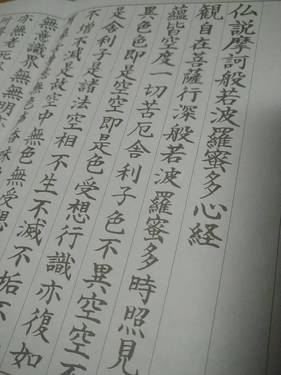 仏説摩訶般若波羅蜜多心経
観自在菩薩行深般若波羅蜜多時照見
蘊皆空度一切苦厄舎利子色不異空空不
異色色即是空空即是色受想行識亦復如
是舎利子是諸法空相不生不滅不垢不
不増不減是故空中無色無受想
無意識界無無明
亦無老死